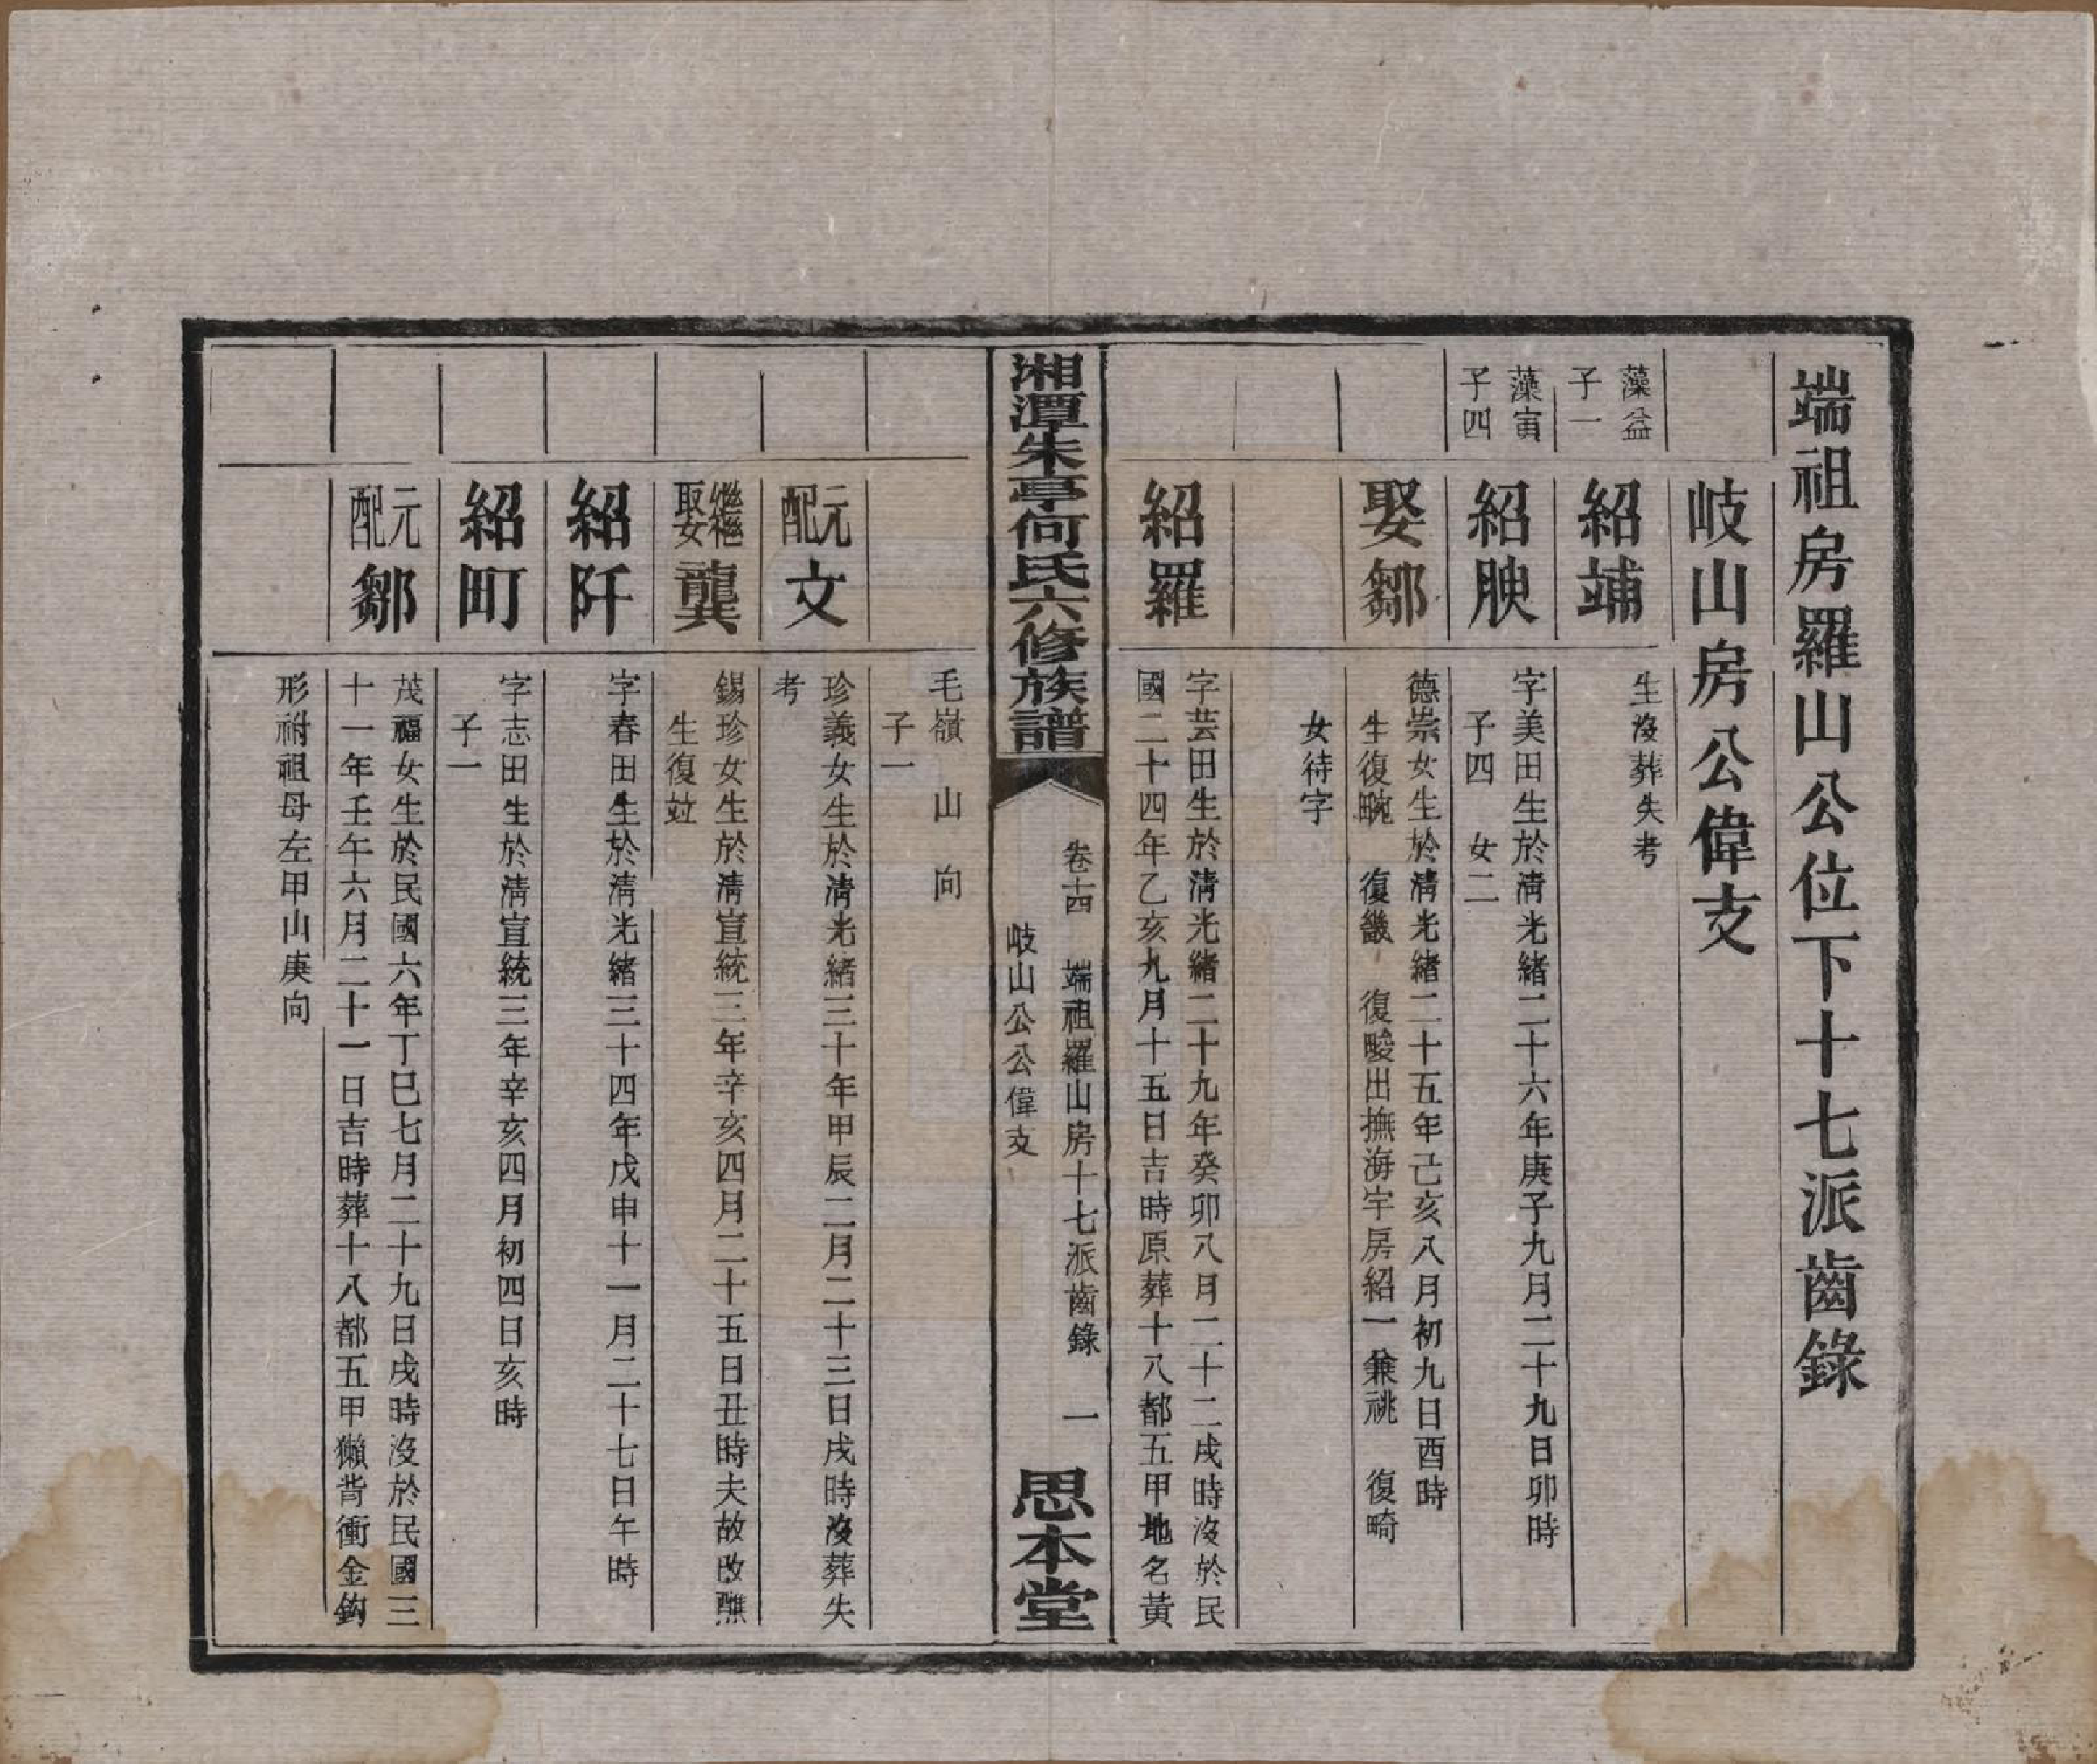 端祖房羅山公位下十七派齒錄
岐山房公偉支
藻益
子一
紹埔
生沒葬失考
藻寅
子四
紹腴
字美田生於清光緒二十六年庚子九月二十九日卯時
子四　女二
娶鄒
德崇女生於清光緒二十五年己亥八月初九日酉時
生復畹　復畿　復畯出撫海宇房紹一兼祧　復畸
女待字
紹羅
字芸田生於清光緒二十九年癸卯八月二十二戌時沒於民
國二十四年乙亥九月十五日吉時原葬十八都五甲地名黃
湘潭朱亭何氏六修族譜
卷十四　端祖羅山房十七派齒錄　一
岐山公公偉支
思本堂
毛嶺山向
子一
元配文
珍義女生於清光緒三十年甲辰二月二十三日戌時沒葬失
考
繼娶龔
錫珍女生於清宣統三年辛亥四月二十五日丑時夫故改醮
生復竝
紹阡
字春田生於清光緒三十四年戊申十一月二十七日午時
紹町
字志田生於清宣統三年辛亥四月初四日亥時
子一
元配鄒
茂福女生於民國六年丁巳七月二十九日戌時沒於民國三
十一年壬午六月二十一日吉時葬十八都五甲獺背衝金鈎
形祔祖母左甲山庚向